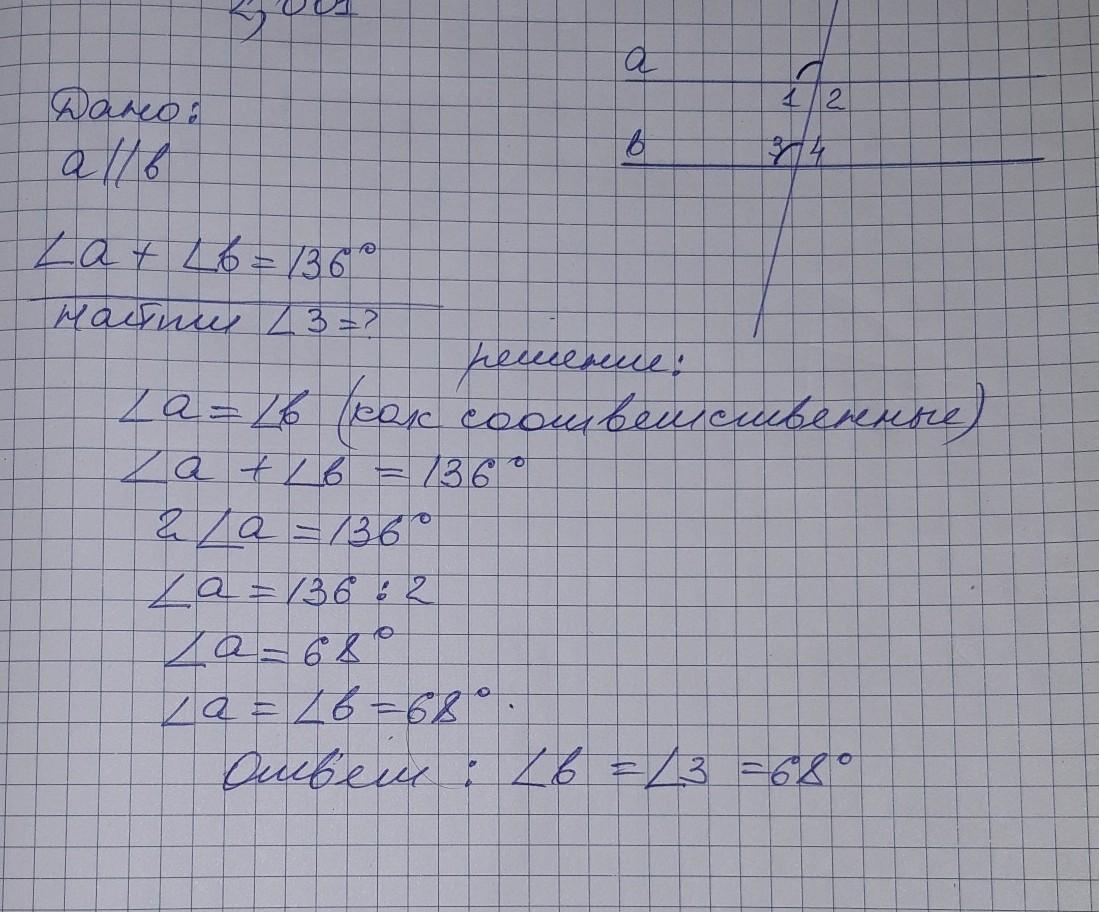 a
1 2
Дано:
a||b
b
3 4
∠a + ∠b = 136°
найти ∠3 = ?
решение:
∠a = ∠b (как соответственные)
∠a + ∠b = 136°
2∠a = 136°
∠a = 136 : 2
∠a = 68°
∠a = ∠b = 68°.
Ответ: ∠b = ∠3 = 68°